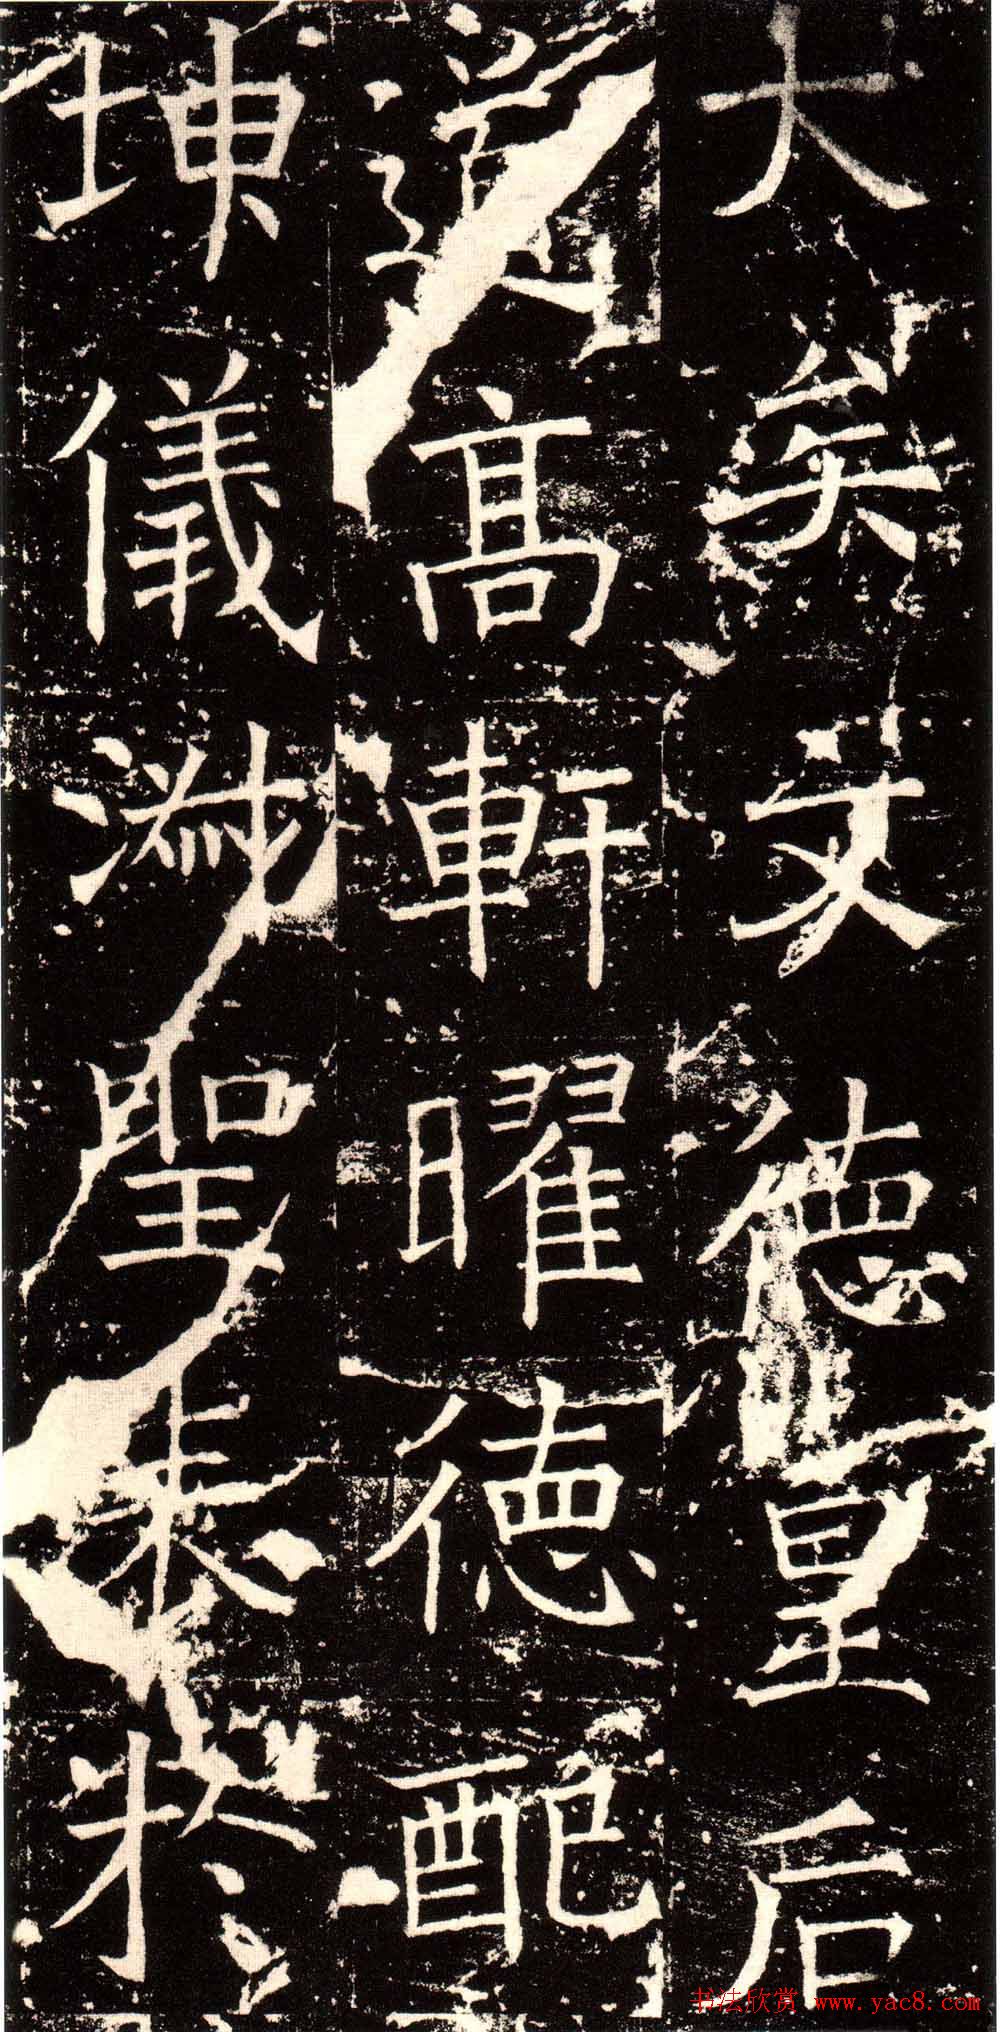 大矣文德皇后
道高軒曜德配
坤儀淑聖表於
书法欣赏 www.yac8.com